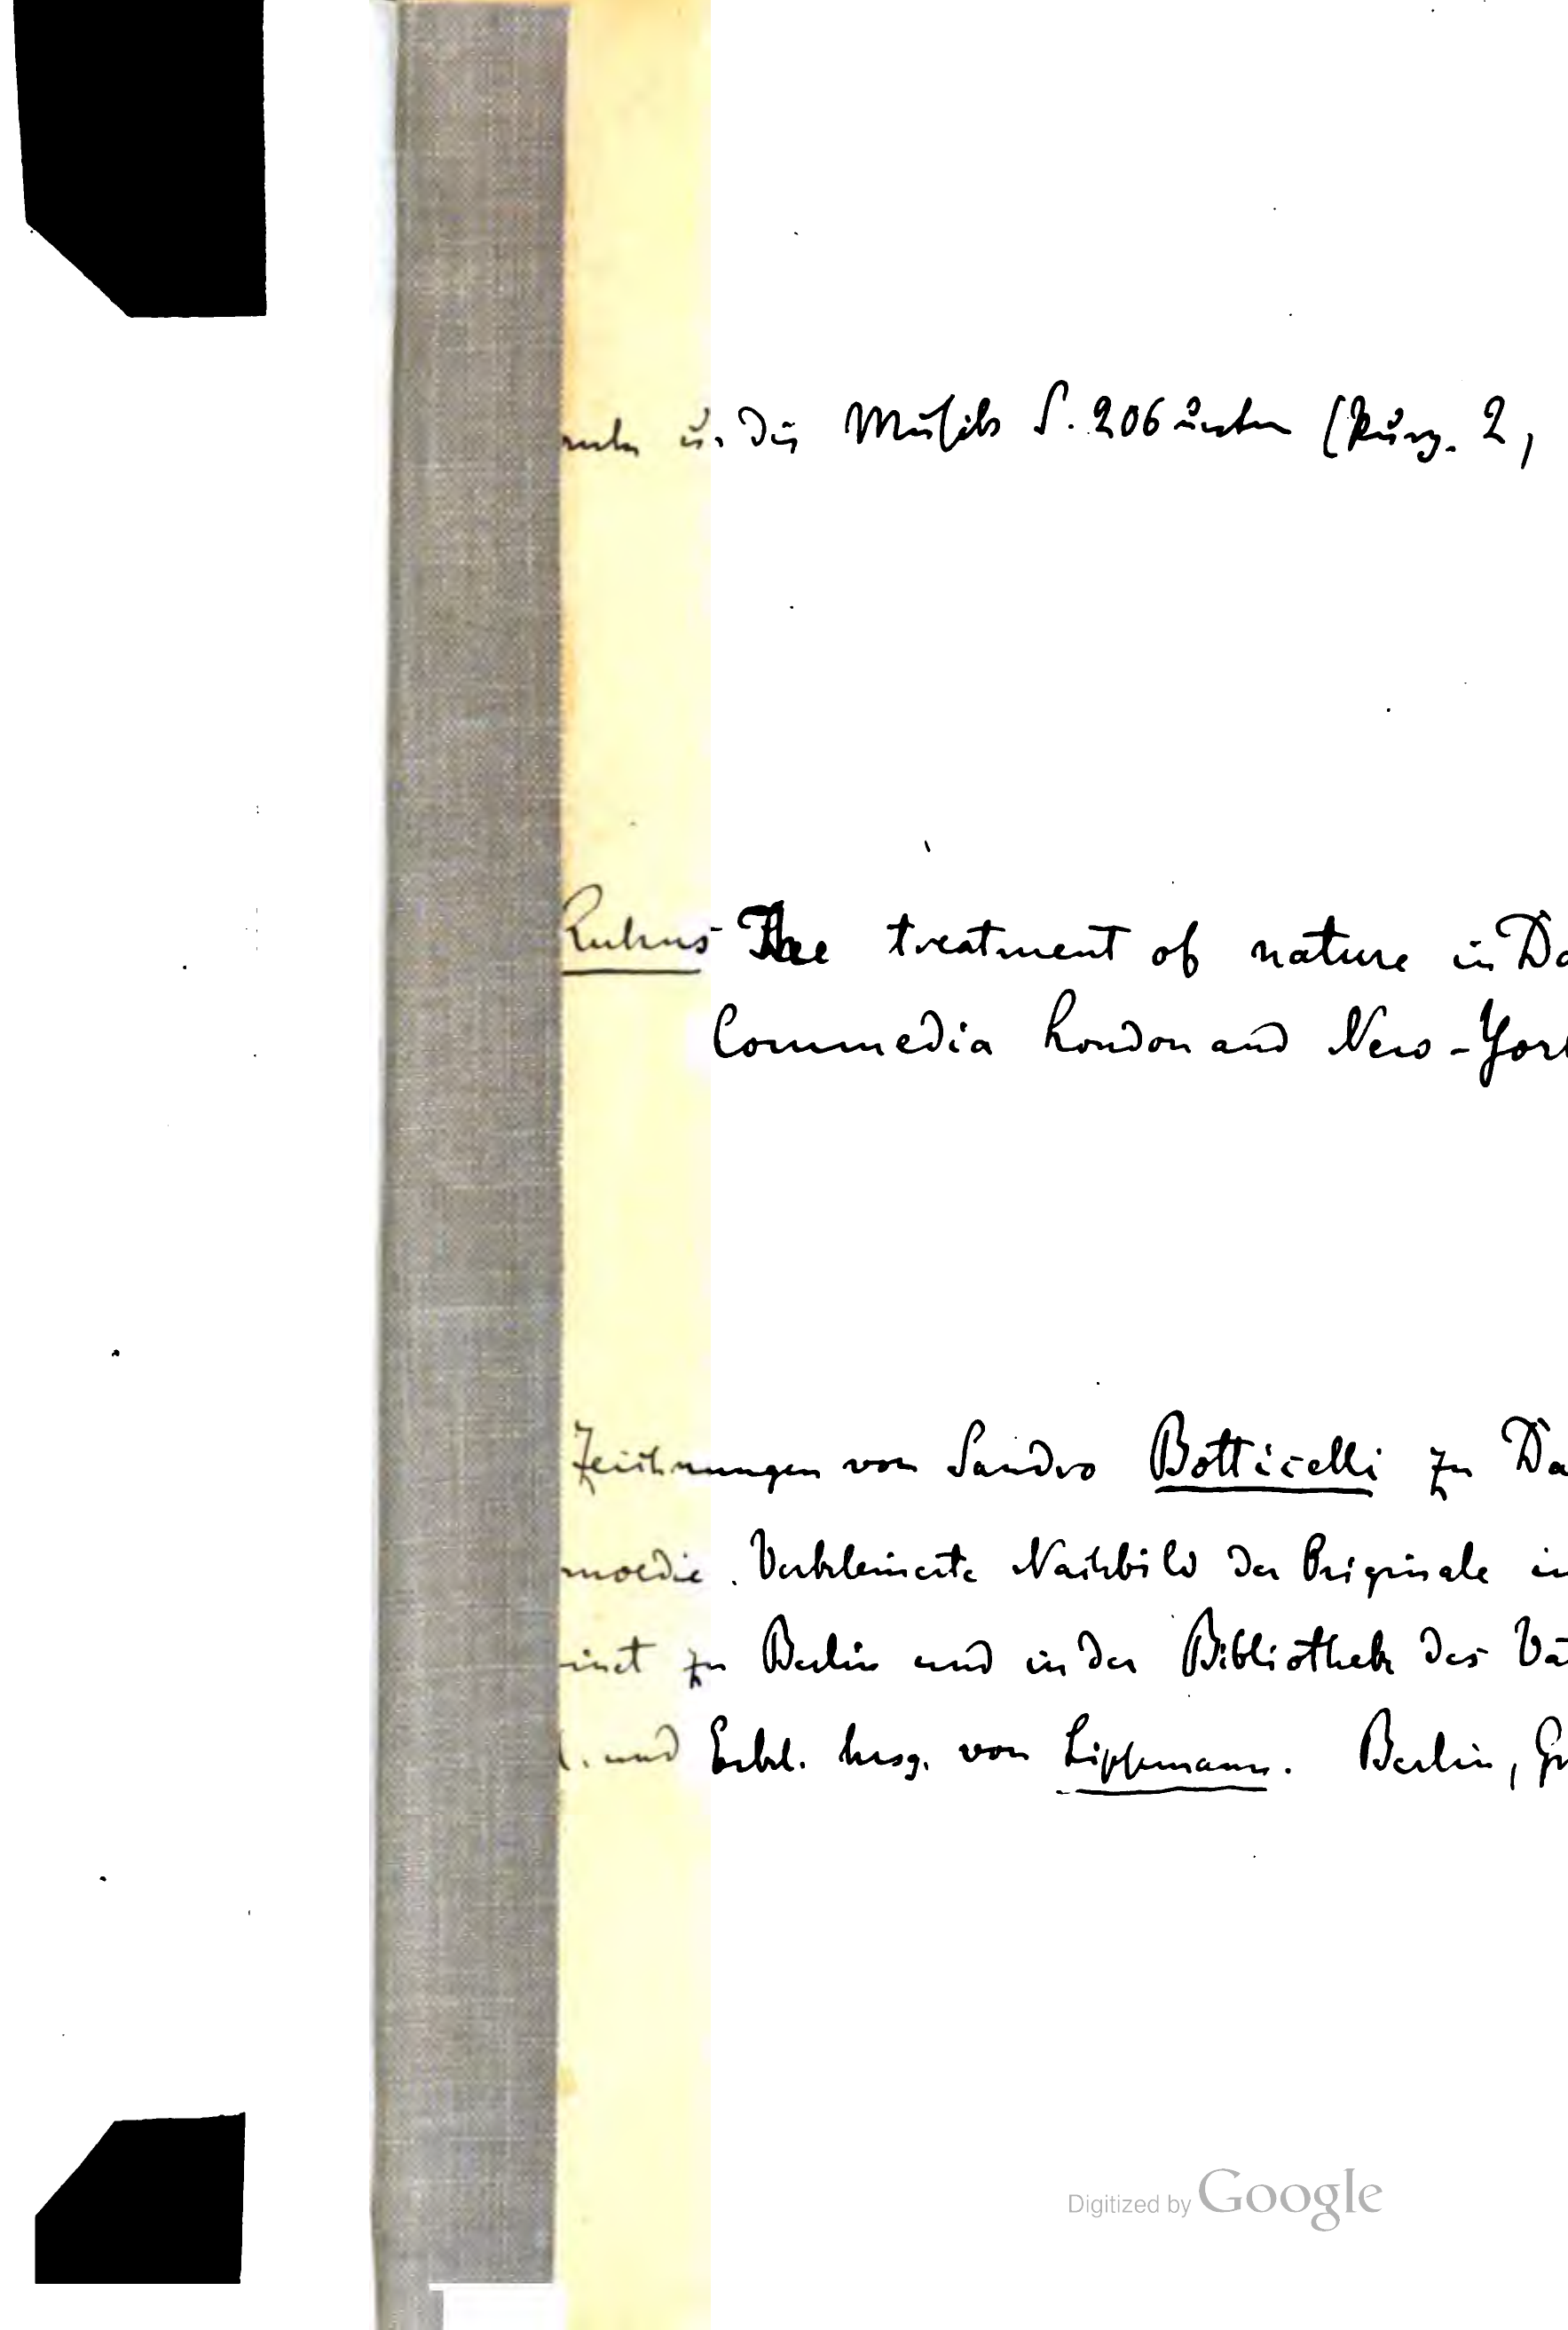 u. die Musik S. 206 unten (Purg. 2,
Kuhns The treatment of nature in Da
Commedia London and New-York
Zeichnungen von Sandro Botticelli zu Da
moedie. Verkleinerte Nachbild der Originale in
inet zu Berlin und in der Bibliothek des Va
. und Erkl. hrsg. von Lippmann. Berlin, G
Digitized by Google